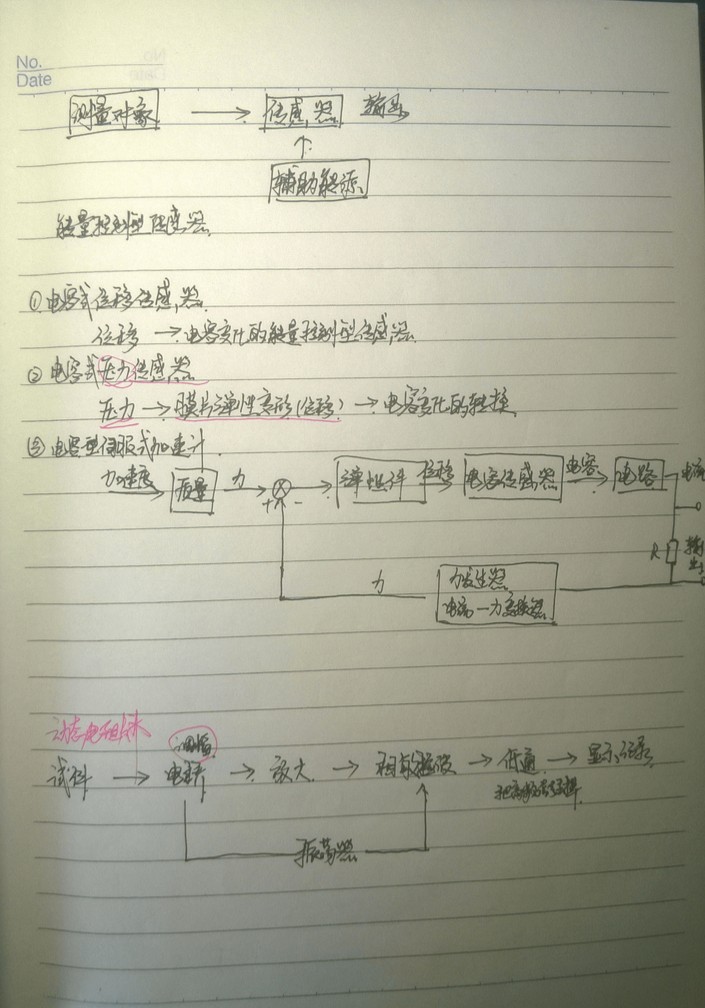 No.
Date
测量对象 → 传感器 输出
↑
辅助能源
能量控制型传感器
①电容式位移传感器
位移 → 电容变化的能量控制型传感器
②电容式压力传感器
压力 → 膜片弹性变形(位移) → 电容变化的转换
③电容型伺服式加速计
加速度 质量 力 + - 弹性件 位移 电容传感器 电容 电路 电流
R 输出
力 力发生器
电流—力变换器
动态电阻
调幅
试件 → 电桥 → 放大 → 相敏检波 → 低通 → 显示、记录
振荡器